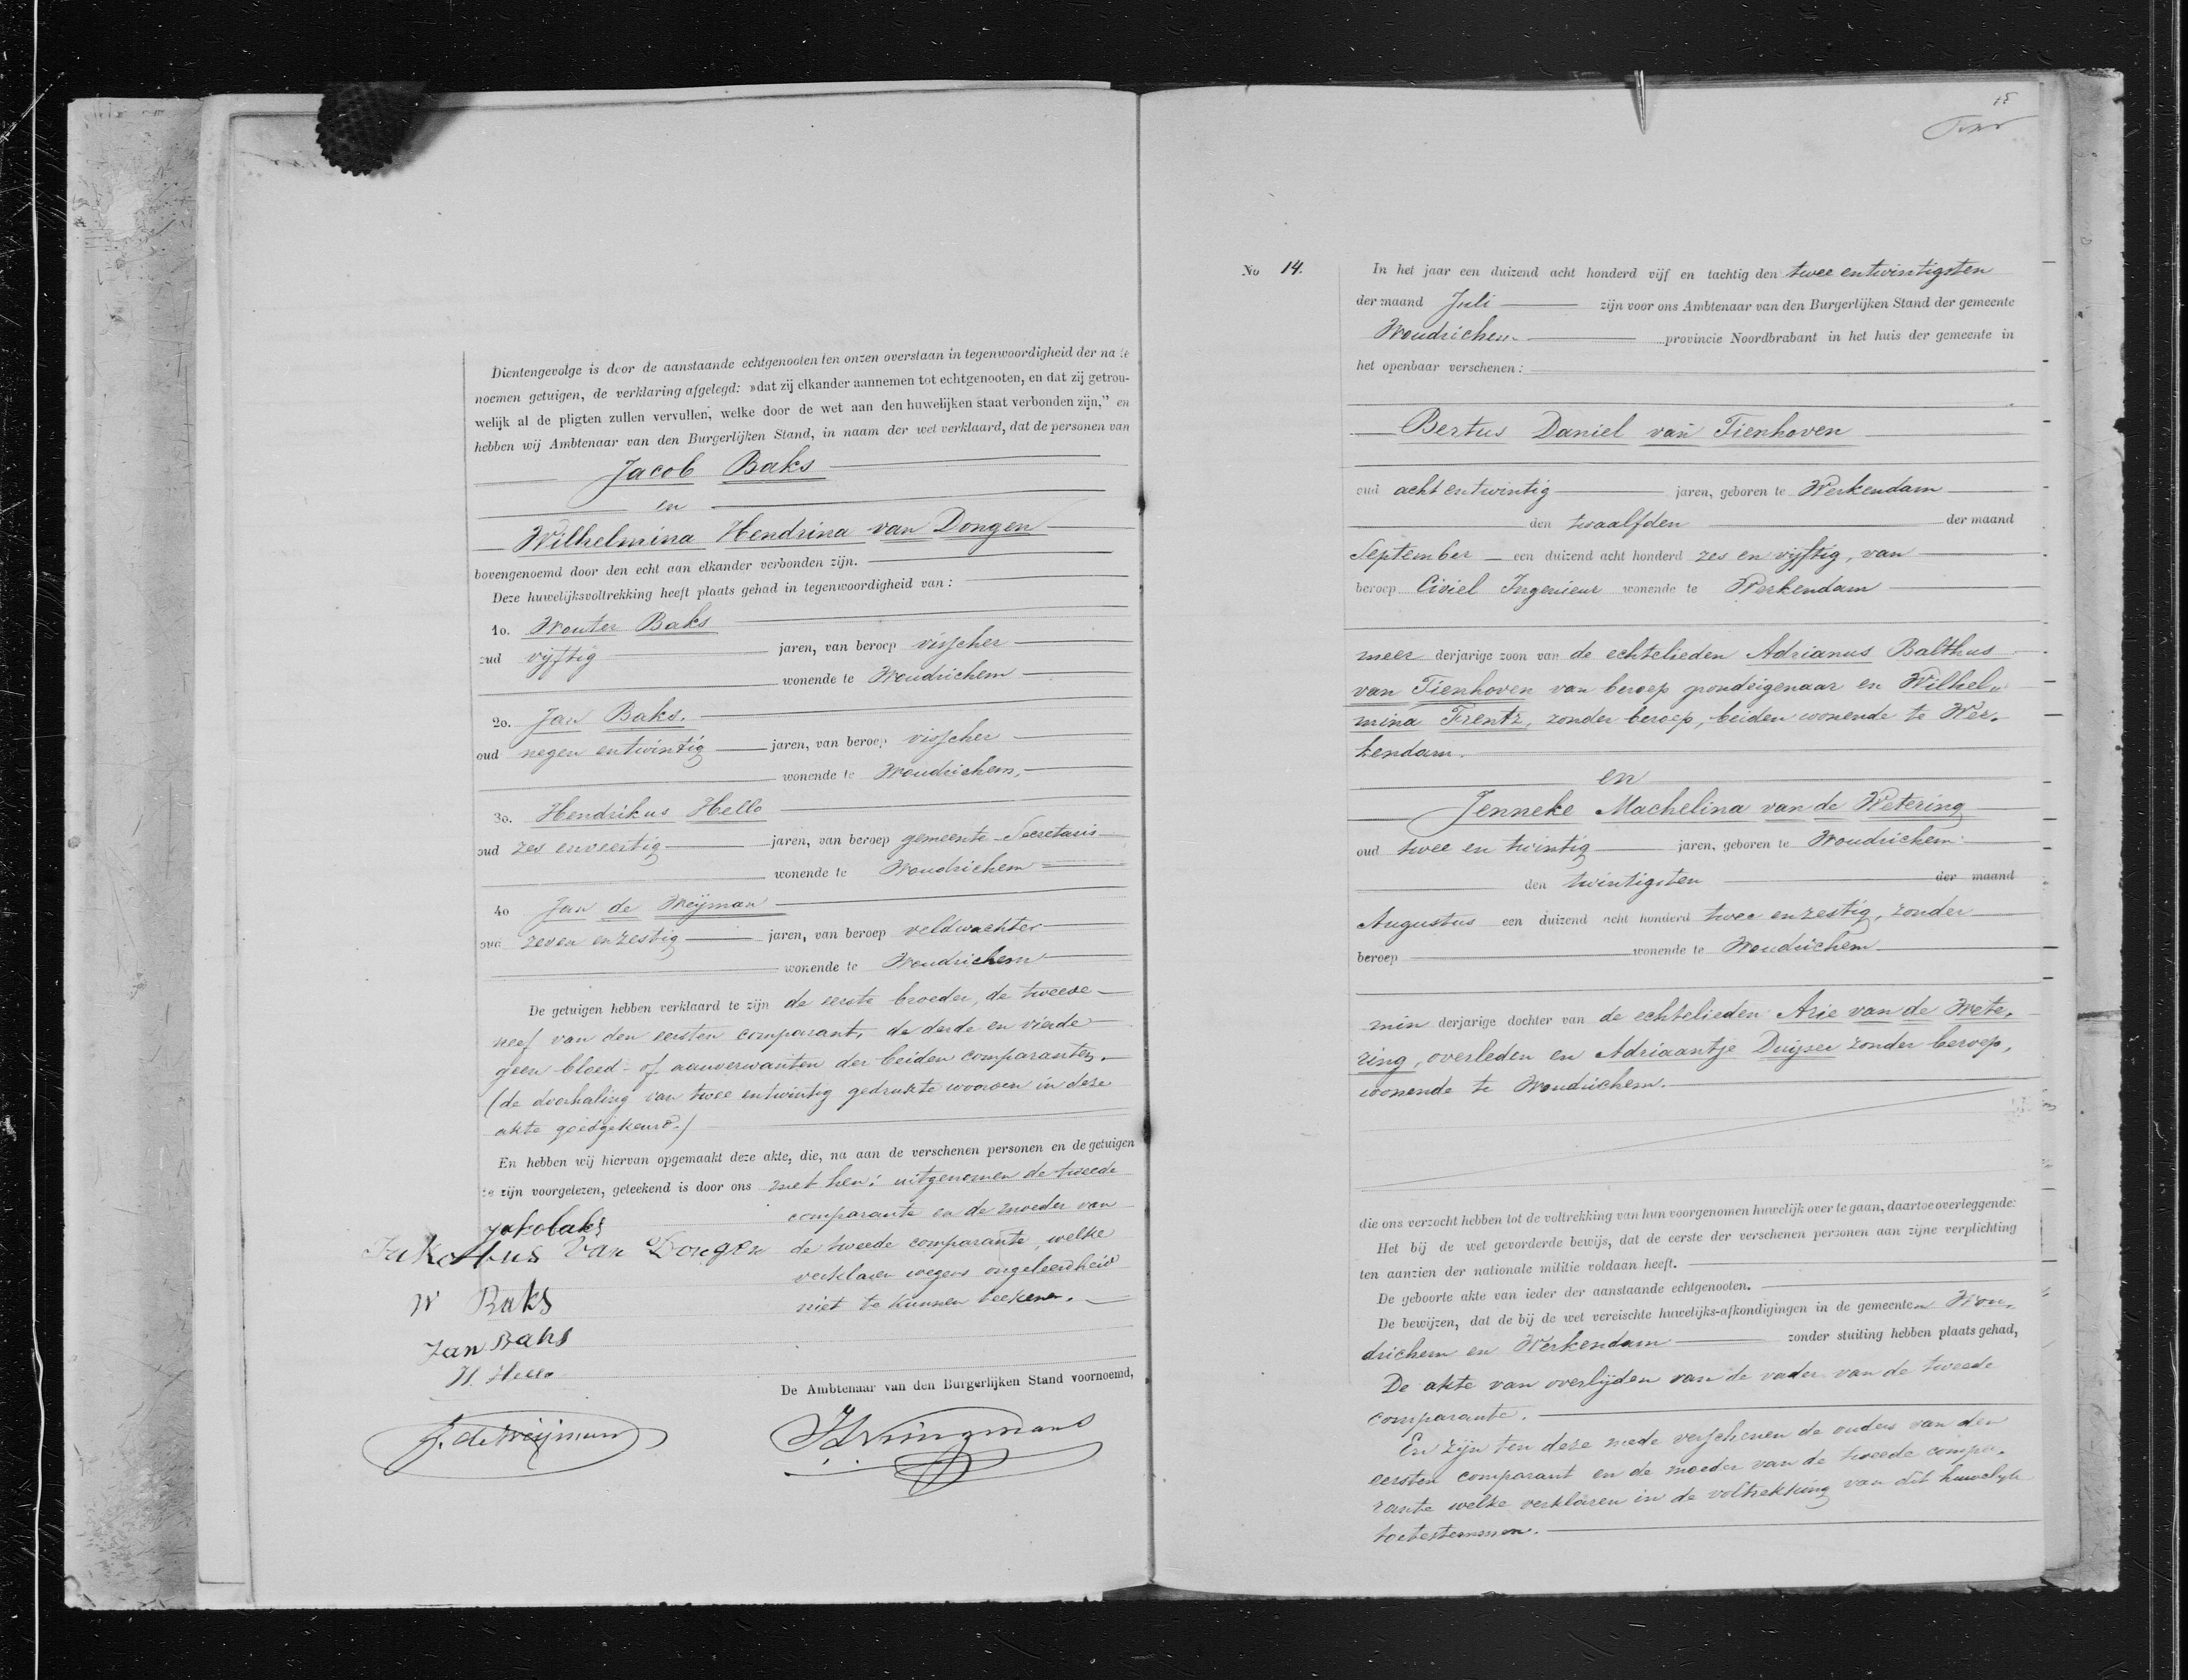 Dientengevolge is door de aanstaande echtgenooten ten onzen overstaan in tegenwoordigheid der na te
noemen getuigen, de verklaring afgelegd: »dat zij elkander aannemen tot echtgenooten, en dat zij getrou-
welijk al de pligten zullen vervullen, welke door de wet aan den huwelijken staat verbonden zijn," en
hebben wij Ambtenaar van den Burgerlijken Stand, in naam der wet verklaard, dat de personen van
Jacob Baks
en
Wilhelmina Hendrina van Dongen
bovengenoemd door den echt aan elkander verbonden zijn.
Deze huwelijksvoltrekking heeft plaats gehad in tegenwoordigheid van:
1o. Wouter Baks
oud vijftig jaren, van beroep visscher
wonende te Woudrichem
2o. Jan Baks.
oud negen entwintig jaren, van beroep visscher
wonende te Woudrichem,
3o. Hendrikus Hello
oud zes enveertig jaren, van beroep gemeente-Secretaris
wonende te Woudrichem
4o Jan de Weijman
oud zeven enzestig jaren, van beroep veldwachter
wonende te Woudrichem
De getuigen hebben verklaard te zijn de eerste broeder, de tweede
neef van den eersten comparant, de derde en vierde
geen bloed- of aanverwanten der beiden comparanten.
(de doorhaling van twee entwintig gedrukte woorden in deze
akte goedgekeurd.)
En hebben wij hiervan opgemaakt deze akte, die, na aan de verschenen personen en de getuigen
te zijn voorgelezen, geteekend is door ons met hen; uitgenomen de tweede
comparante en de moeder van
de tweede comparante, welke
verklaren wegens ongeleerdheid
niet te kunnen teekenen.
van Dongen
W Baks
Jan Baks
H. Hello
De Ambtenaar van den Burgerlijken Stand voornoemd,
J. de Weijman
15
No 14.
In het jaar een duizend acht honderd vijf en tachtig den twee entwintigsten
der maand Juli zijn voor ons Ambtenaar van den Burgerlijken Stand der gemeente
Woudrichem provincie Noordbrabant in het huis der gemeente in
het openbaar verschenen:
Bertus Daniel van Tienhoven
oud acht entwintig jaren, geboren te Werkendam
den twaalfden der maand
September een duizend acht honderd zes en vijftig, van
beroep Civiel Ingenieur wonende te Werkendam
meer derjarige zoon van de echtelieden Adrianus Balthus
van Tienhoven van beroep grondeigenaar en Wilhel„
mina Frentz, zonder beroep, beiden wonende te Wer.
kendam.
en
Jenneke Machelina van de Wetering
oud twee en twintig jaren, geboren te Woudrichem
den twintigsten der maand
Augustus een duizend acht honderd twee enzestig, zonder
beroep wonende te Woudrichem
min derjarige dochter van de echtelieden Arie van de Wete.
ring, overleden en Adriaantje Duijser zonder beroep,
wonende te Woudrichem.
die ons verzocht hebben tot de voltrekking van hun voorgenomen huwelijk over te gaan, daartoe overleggende:
Het bij de wet gevorderde bewijs, dat de eerste der verschenen personen aan zijne verplichting
ten aanzien der nationale militie voldaan heeft.
De geboorte akte van ieder der aanstaande echtgenooten.
De bewijzen, dat de bij de wet vereischte huwelijks-afkondigingen in de gemeenten Wou.
drichem en Werkendam zonder stuiting hebben plaats gehad,
De akte van overlijden van de vader van de tweede
comparante.
En zijn ten deze mede verschenen de ouders van den
eersten comparant en de moeder van de tweede compa.
rante welke verklaren in de voltrekking van dit huwelijk
toetestemmen.